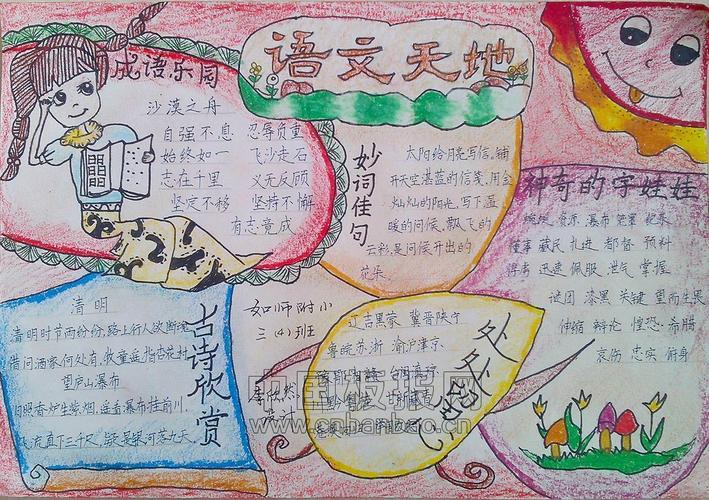 语文天地
成语乐园
沙漠之舟
自强不息 忍辱负重
始终如一 飞沙走石
志在千里 义无反顾
坚定不移 坚持不懈
有志竟成
妙词佳句
太阳给月亮写信。铺
开天空湛蓝的信笺,用金
灿灿的阳光,写下温
暖的问候,飘飞的
云彩,是问候开出的
花朵
神奇的字娃娃
瀑布 笼罩
董事 藏民 扎进 都督 预料
迅速 佩服 泄气 掌握
谜团 漆黑 关键 望而生畏
伸缩 辩论 惶恐 希腊
哀伤 忠实 俯身
古诗欣赏
清明
清明时节雨纷纷,路上行人欲断魂
借问酒家何处有,牧童遥指杏花村
望庐山瀑布
日照香炉生紫烟,遥看瀑布挂前川,
飞流直下三千尺,疑是银河落九天。
如师附小
三(4)班
李欣然
辽吉黑蒙 冀晋陕宁
粤皖苏浙 渝沪津京
中国板报网
www.cnbanbao.cn